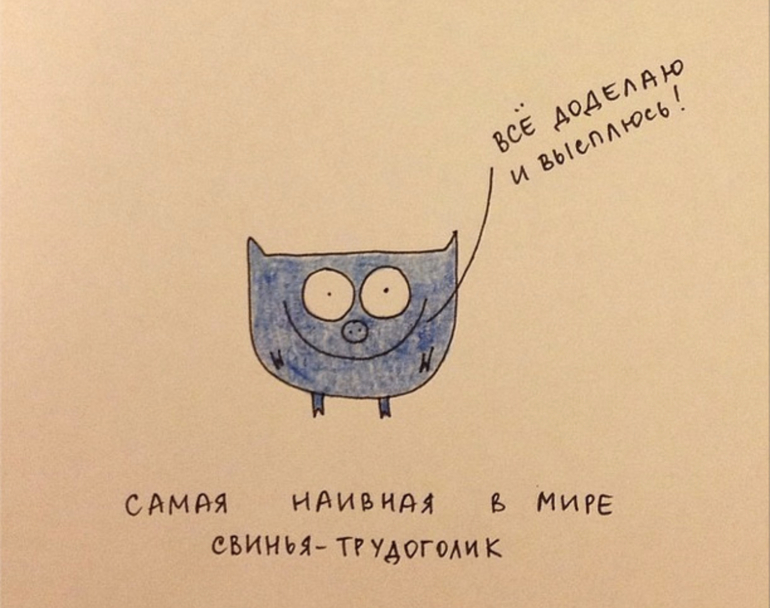 ВСЁ ДОДЕЛАЮ
И ВЫСПЛЮСЬ!
САМАЯ НАИВНАЯ В МИРЕ
СВИНЬЯ-ТРУДОГОЛИК